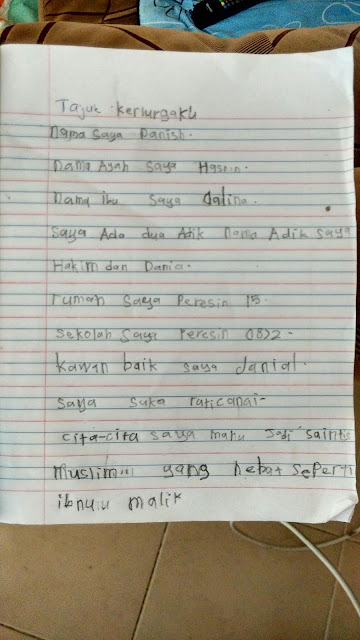 Tajuk kelurgaku
nama saya Danish.
nama Ayah saya Hasnin.
nama ibu saya dalina.
Saya Ada dua Adik nama Adik saya
Hakim dan Dania.
rumah saya Peresin 15.
sekolah saya Peresin
kawan baik saya danial.
saya suka
cita-cita saya mahu jadi saintis
muslim yang hebat seperti
malik